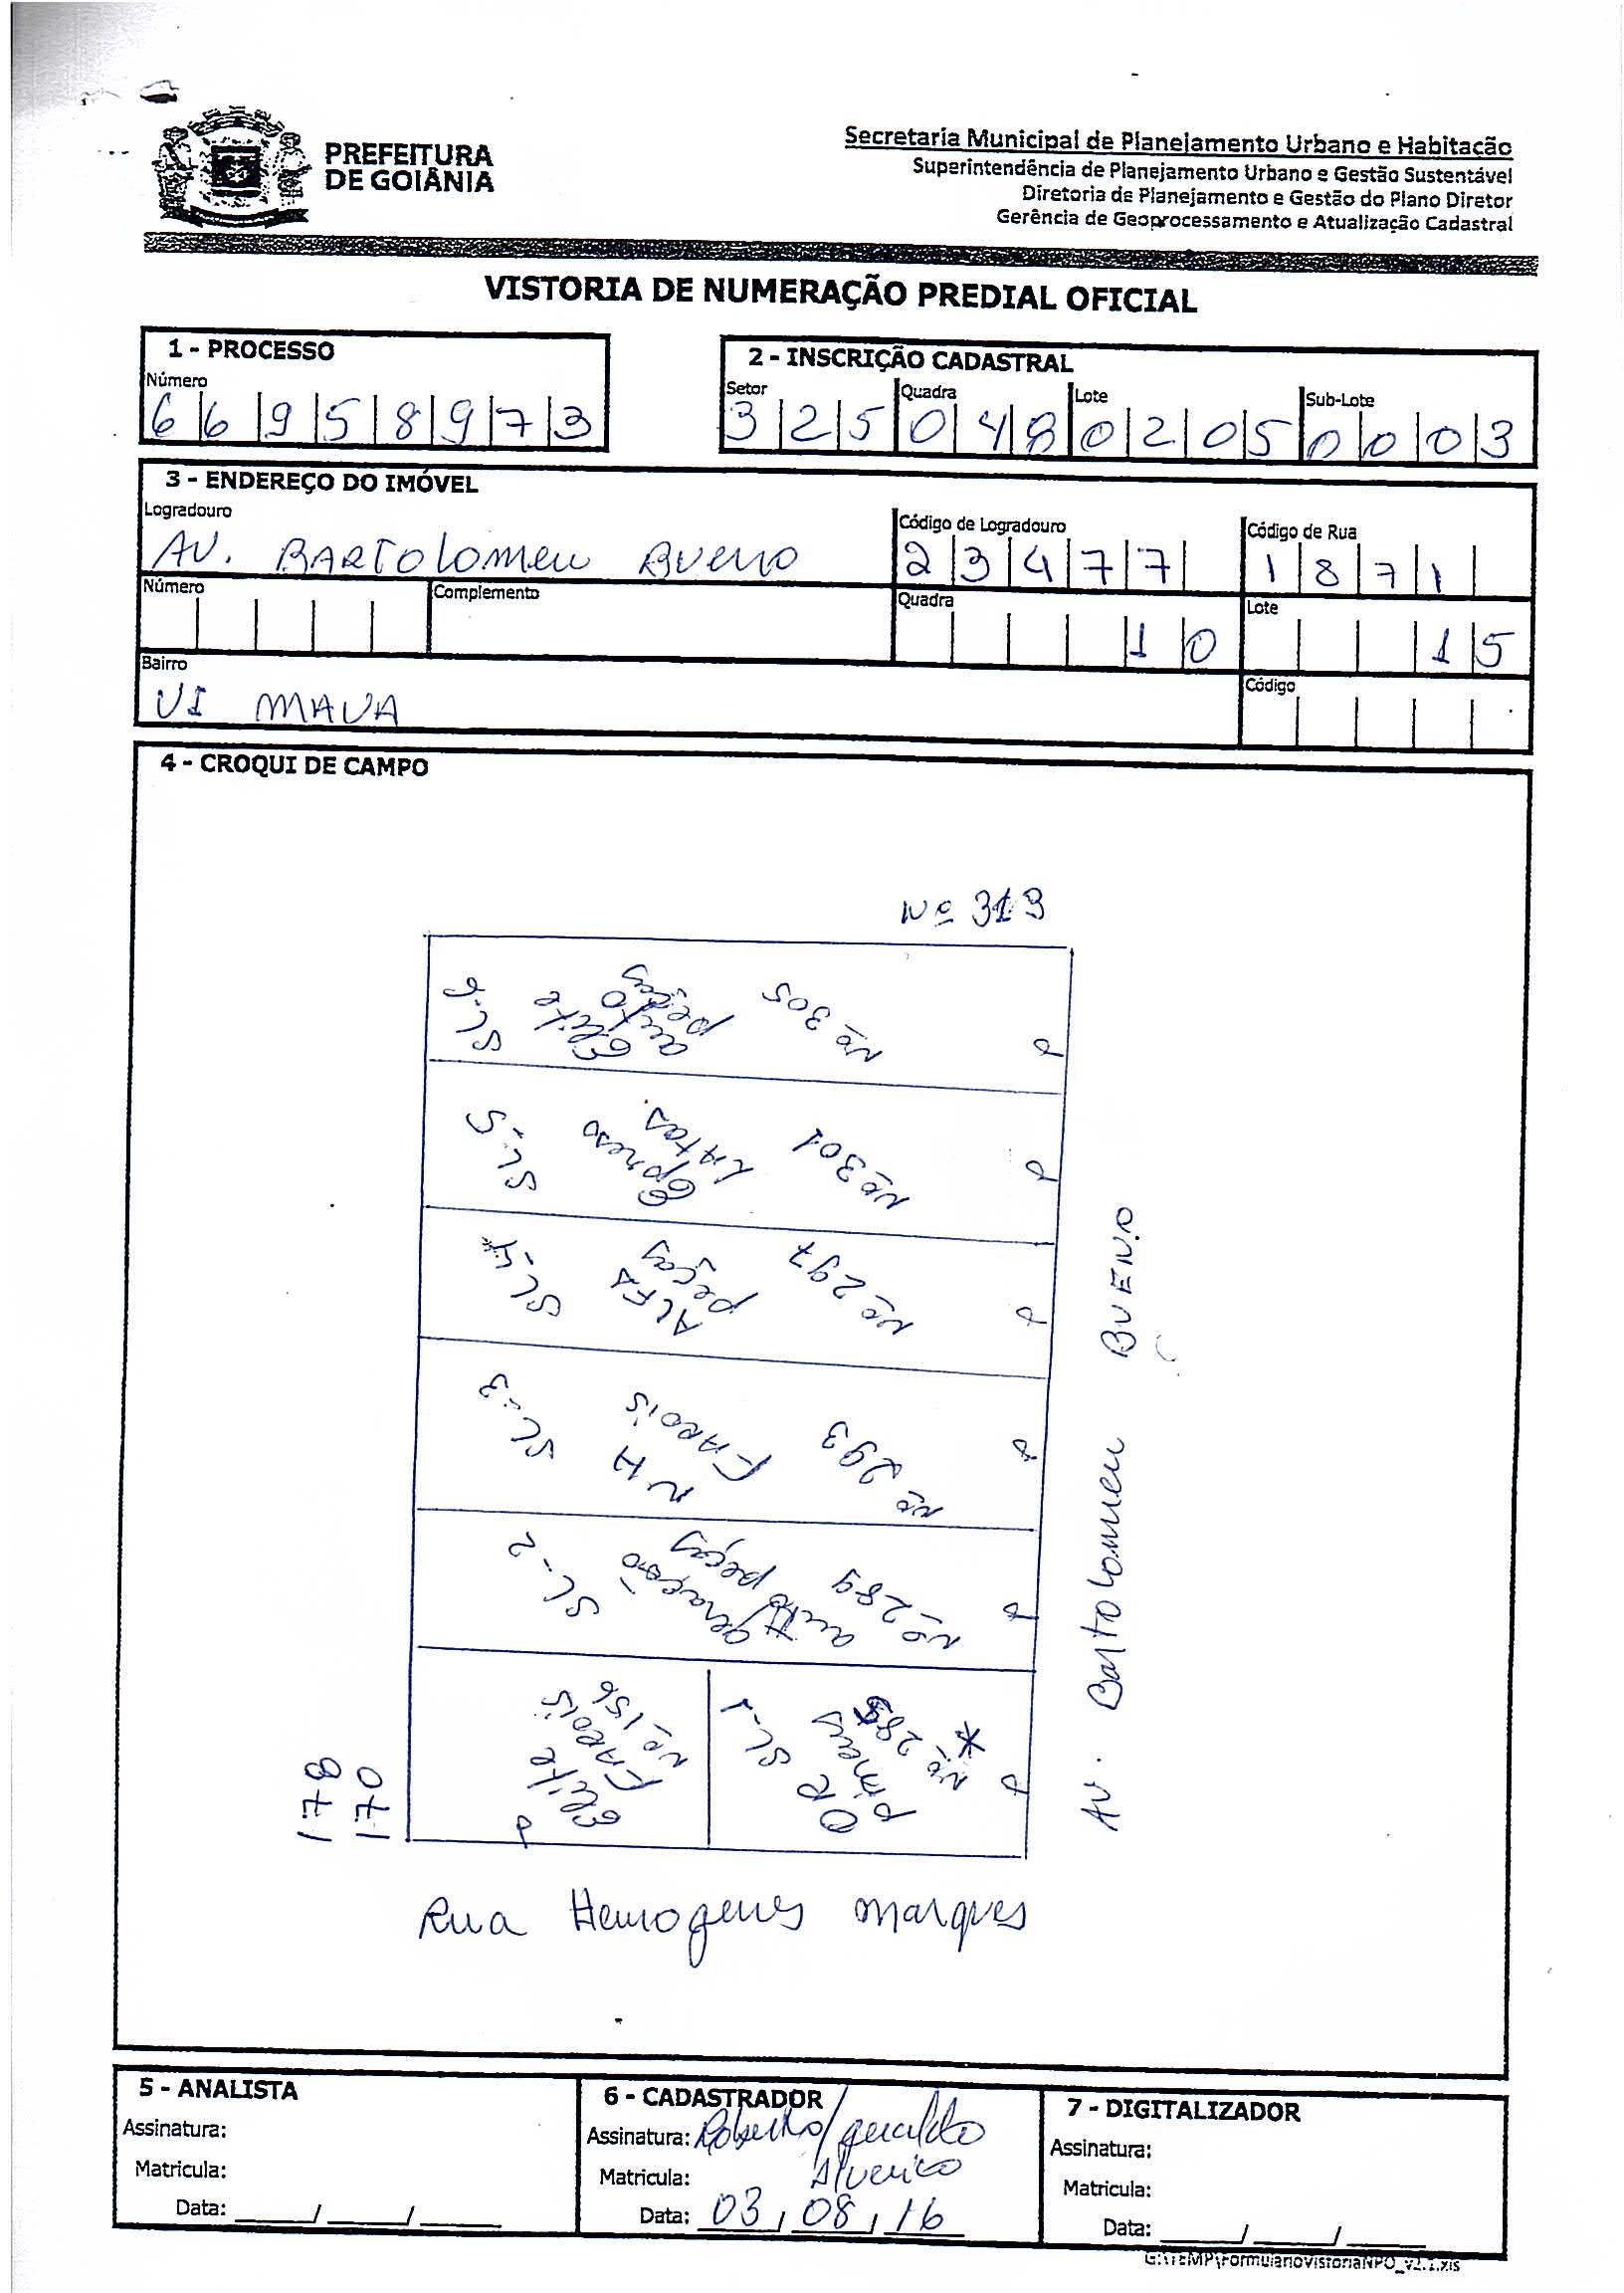 PREFEITURA
DE GOIÂNIA
Secretaria Municipal de Planejamento Urbano e Habitação
Superintendência de Planejamento Urbano e Gestão Sustentável
Diretoria de Planejamento e Gestão do Plano Diretor
Gerência de Geoprocessamento e Atualização Cadastral
VISTORIA DE NUMERAÇÃO PREDIAL OFICIAL
1 - PROCESSO
Número
66958973
2 - INSCRIÇÃO CADASTRAL
Setor Quadra Lote Sub-Lote
325 048 0205 0003
3 - ENDEREÇO DO IMÓVEL
Logradouro Código de Logradouro Código de Rua
AV. BARTOLOMEU BUENO 23477 1871
Número Complemento Quadra Lote
10 15
Bairro Código
VI MAUA
4 - CROQUI DE CAMPO
Nº 313
SL-6
Elite
auto
peças
Nº 305
SL-5
LATAS
Nº 301
SL-4
ALFA
peças
Nº 297
SL-3
NH
FAROIS
Nº 293
SL-2
geração
auto peças
Nº 289
Elite
FAROIS
Nº 156
SL-1
OR
pineus
Nº 285
*
178
170
AV. Bartolomeu BUENO
Rua Hemogenes Marques
5 - ANALISTA
Assinatura:
Matricula:
Data: ____/____/____
6 - CADASTRADOR
Assinatura: Roberto/geraldo
Matricula:
Data: 03/08/16
7 - DIGITALIZADOR
Assinatura:
Matricula:
Data: ____/____/____
G:\TEMP\FormularioVistoriaNPO_v2.1.xls